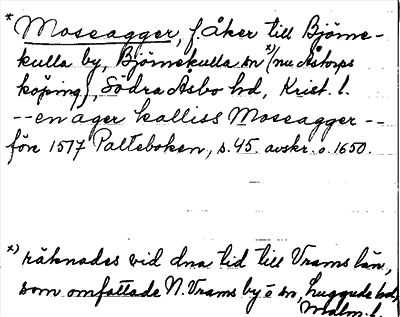 * Moseagger, f. åker till Björne-
kulla by, Björnekulla sn *) (nu Åstorps
köping), Södra Åsbo hd, Krist. l.
--en ager kalliss Moseagger --
före 1517 Palteboken, s. 45. avskr. o. 1650.
*) räknades vid dna tid till Vrams län,
som omfattade N. Vrams by o sn, Luggude hd,
Malm. l.